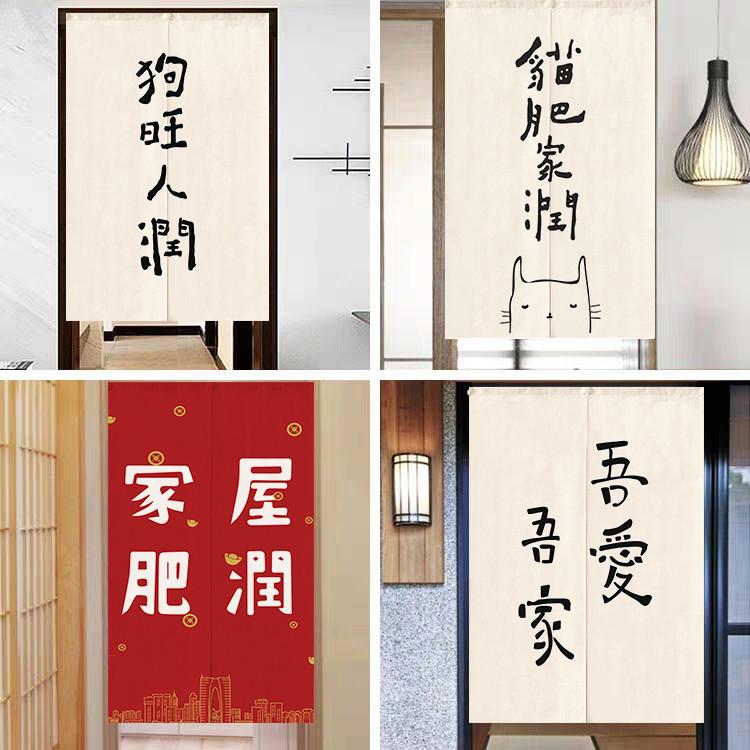 狗旺人潤
貓肥家潤
屋潤
家肥
吾愛
吾家